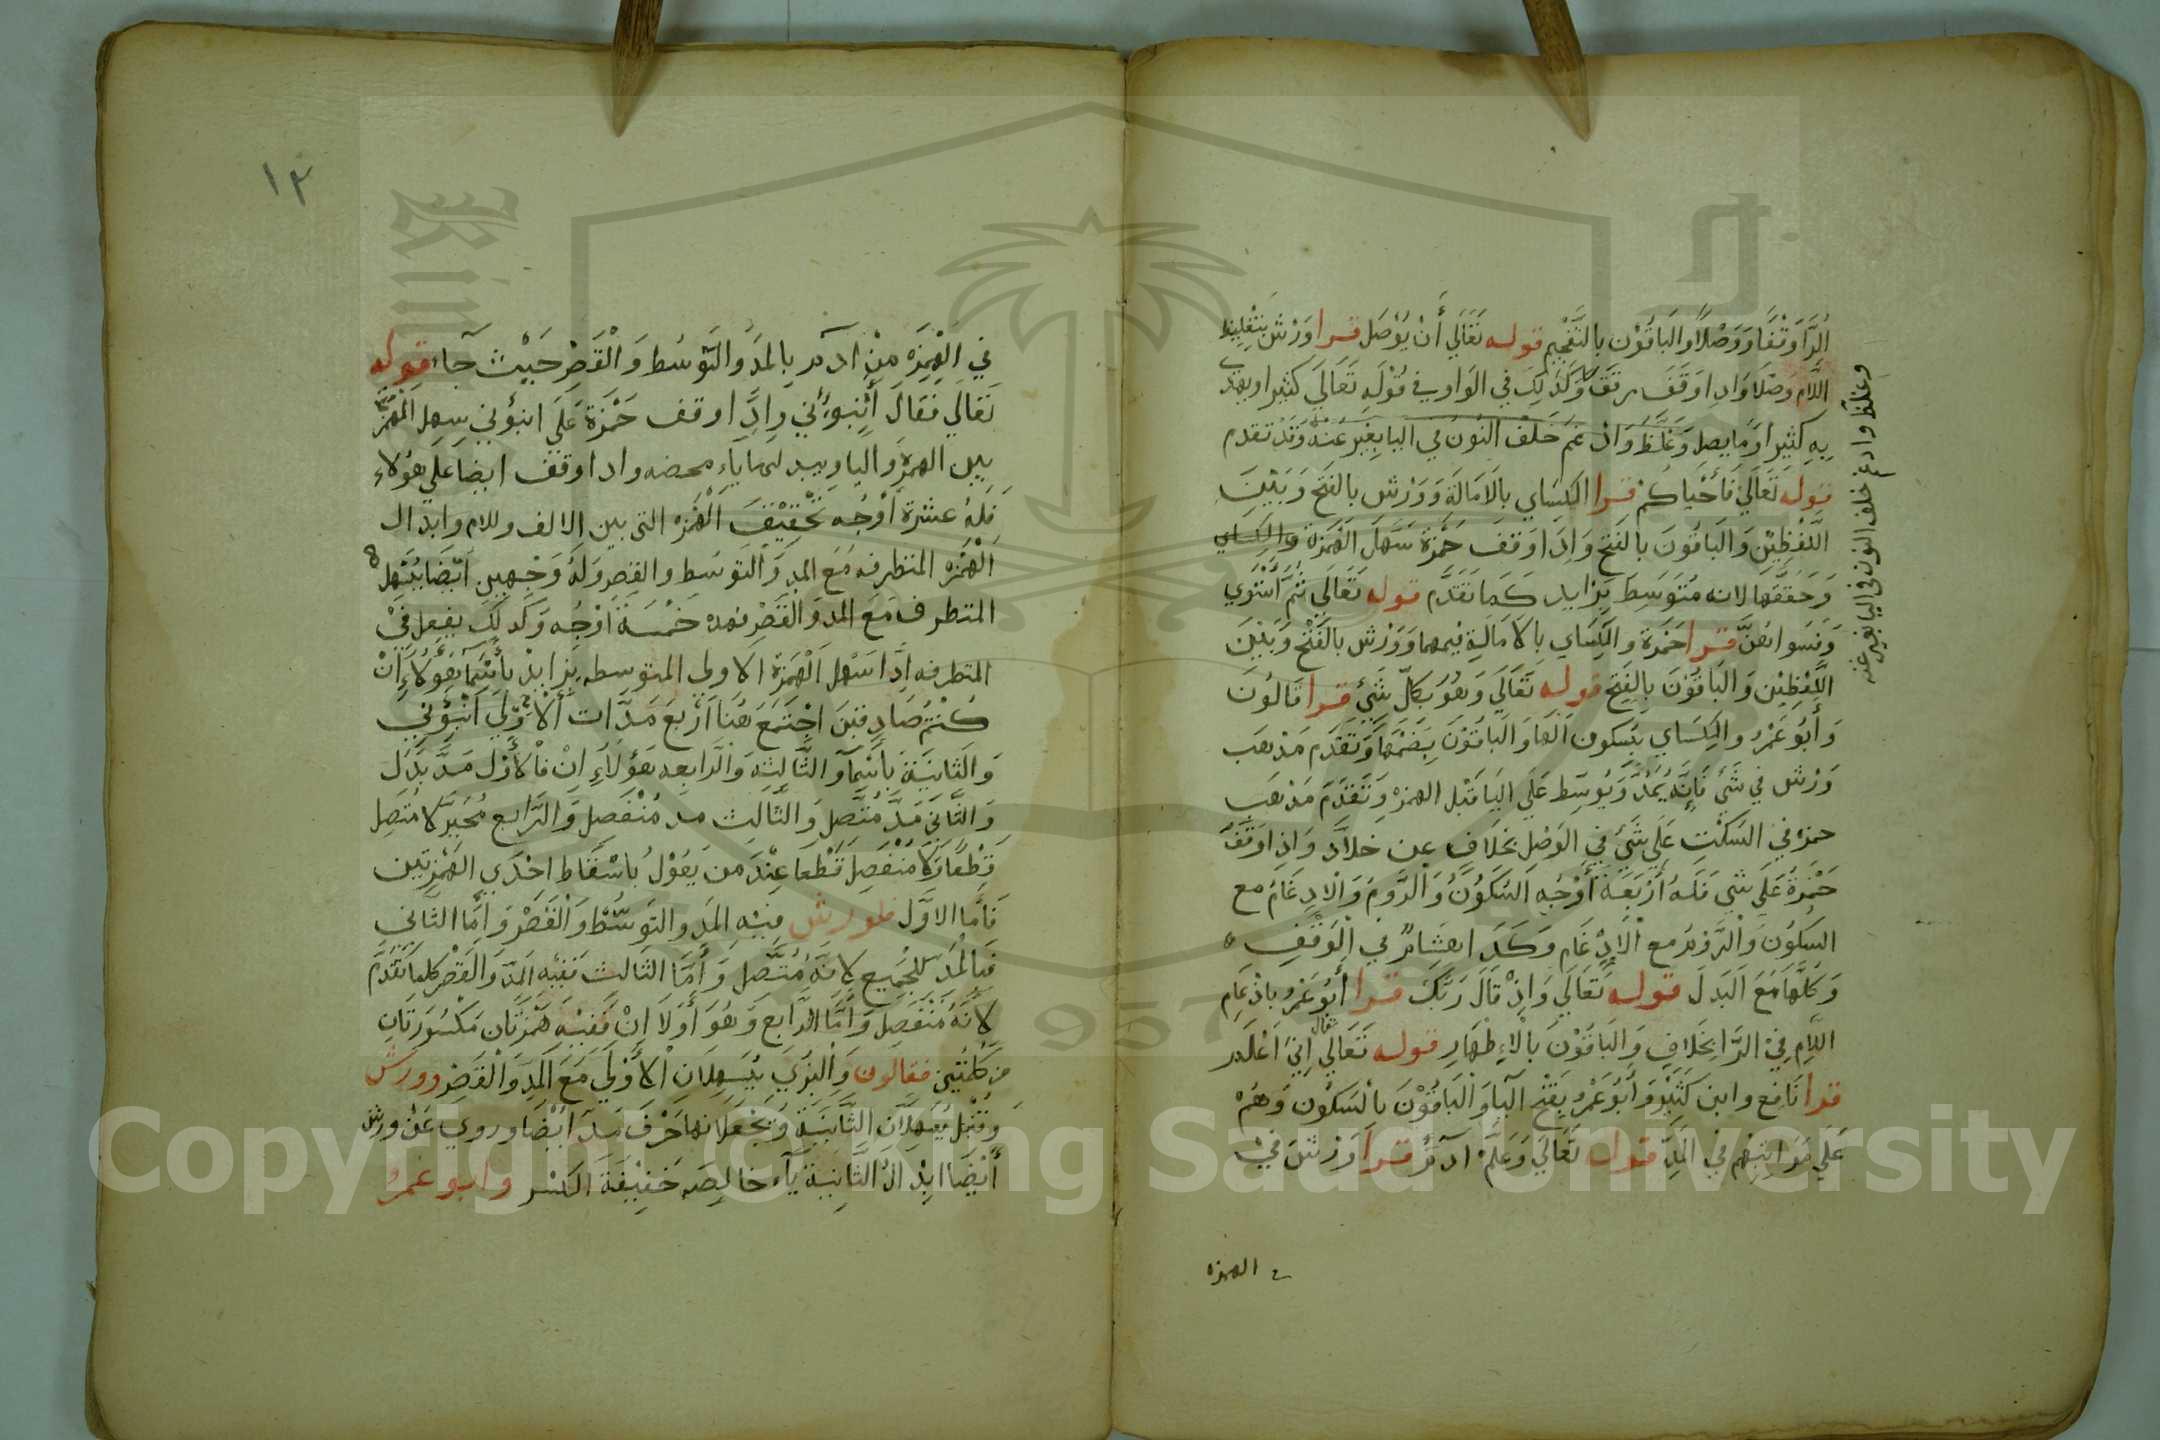 الرَّا وَقْفًا وَوَصْلًا وَالبَاقُوْن بالتَّفْخِيم قوله تَعَالَي أَنْ يُوْصَل قرا وَرْش بِتَغْلِيظ
اللَّام وَصْلًا وَاداوَقَفَ رقق وَكَذَلِكَ في الوَاو في قوْلَهِ تَعَالَي كثيرا ويهدي
بِهِ كَثِيرًا وَمَا يضل وَغَلَّظ وَادْغم خَلَفْ النُونَ في اليا بِغَيْر غنه وَقد تقدم
قوله تَعَالَي فَأَحْيَاكُم قرا الكِسَاي بالامَالَةِ وَوَرْش بالفَتح وَبَيْنَ
اللَّفْظِيْن وَالبَاقُونَ بالفَتح وَاِذَا وَقَفَ حَمْزَة سَهَّلَ الهَمْزَة والكساي
وَحَقَّقَهَا لانه مُتَوسَط بِزَايد كَمَا تَقَدَّم قوله تَعَالَي ثُمَّ اَسْتَوَي
وَفَسَوَاهُنَّ قرا حَمْزَة والكِسَاي بِالامَالَةِ فيهما وَوَرْش بالفَتْح وَبَيْنَ
اللَّفْظِيْن وَالبَاقُوْنَ بِالفَتح قوله تَعَالَي وَهُوَ بكلّ شَئٍ قرا قَالُونَ
وَأَبُو عَمْرُ والكِسَاي بسكون الهَا وَالبَاقُوْنَ بِضَمْهَا وَتَقَدَم مَذهَب
وَرْش في شَيْ فَاِنَّه يُمَدُّ وَيُوسّط عَلَي اليَا قَبْل الهمزه وَتَقَدَمَ مَذهَب
حمزه في السَكْت عَلَي شَئٍ في الوَصْل بخلَافٍ عن خلادَّ وَاذا وَقَفَ
حَمْزَةُ عَلَي شَي فَلَهُ أَرْبَعَةَ أَوْجُهٍ السُكُونُ وَالرَّوم وَالادغَامُ مع
السِكُوْن والرَّوم مع الْادْغَام وَكَذَا هشَامٌ في الوَقْفِ ه
وَكُلَّهَا مَعَ البَدَلَ قوله تَعَالَي وَاِذْ قَالَ رَبَّكَ قرا أبُو عَمْرُ بادْغَام
اللَّامِ فِيْ الرَّا بخَلافِ وَالبَاقُوْنَ بالْاِظهَار قوله تَعَالَي قال اِنيَ اَعْلَمَ
قرا نَافع وابن كَثِيْر وَأبُو عَمْرُ بفَتْح اليَا وَالبَاقُوْن بالسكُون وَهُمْ
عَلَي مَرَاتِبْهِم في المَدِّ قوله تَعَالَي وَعَلَّمَ آدَم قرا وَرْش في
الهمزه
وغلظ وادغم خلف النون في اليا بغير غنه
١٢
في الهَمِزَه مِنْ ادآم بِالمَدِّ وَالتَوسُط وَالْقَصْر حَيْث جَآء قوله
تَعَالَي فَقَالَ أَنْبِؤُني وِاذَّا وقف حَمْزَة عَلَي انبؤني سهل الْهَمْزَة
بين الهمزة وَاليا ويبدلها ياء محضه واداوقف ايضا علي هؤلاء
فَلَهُ عشرة أوْجُه تَحْقِيْقَ الْهَمْزه التي بين الالف وللام وابدال
الْهَمْزه المتطرفه مَعَ المد وَالتَوسُط والقصر وَلَهُ وَجْهين ايْضًا يُسَهل
المتطرف مَعَ المد وَالْقَصْر فهذه خمْسَة اَوْجُه وَكَذلِكَ يفعل فِيْ
المتطرفه اِذَّا سَهْل الْهَمَزَة الاولي المتوسطه بِزَايدْ بأَسْمَآء هَؤُلآءِ اِنْ
كُنْتُم صَادِقِيْنَ اجْتَمَعَ هُنَا اَرْبع مَدَّات أَلْاُوِّلَي اَنْبِؤُني
وَالثَانِيَة بأَسْمَآء الثَّالِثِه وَالرَّابعه هَؤُلاءِ اِنْ فَالاُوْل مَدَّ بَدَل
وَالثَّاني مَدَّ مُتَّصِل وَالثَّالِث مد مُنْفَصِل وَالرَّابِع مُخيّر لَا مُتَصِل
قَطْعًا وَلَا مُنْفَصِل قَطْعا عِنْدَ من يَقُوْل باسْقَاط احْدَي الهَمْزتين
فَأمَّا الاوَّل فلورش فيه المَد والتَوسُّط وَالْقَصْر وَأمَّا الثَّاني
فَبالْمَد للجَمِيع لانَّه مُتَّصِل وَأمَّا الثَالث فَفيْه المَدّ وَالْقَصْر كما تَقَدَّم
لانَّهُ مُنْفَصِل وَأمَّا الرَّابع وَهُو أَوْلَا اِنْ فَفيْه هَمْزَتَان مَكْسُوْرَتَان
مِن كَلمَتِيْن فقالون وَالْبَزي يُسَهِلَان الْاُوْلَي مَعَ المَدِ وَالْقَصْر وورش
وَقُنْبُل يُسَهِلَّان الثَّانيَة وَيَجْعَلانها حَرْفَ مَدَ ايْضَا وروي عَنْ ورش
أَيْضًا ابْدَال الثَّانِيَةِ يَآء خالِصَه خَفِيْفَة الكَسْر وابو عمرُ